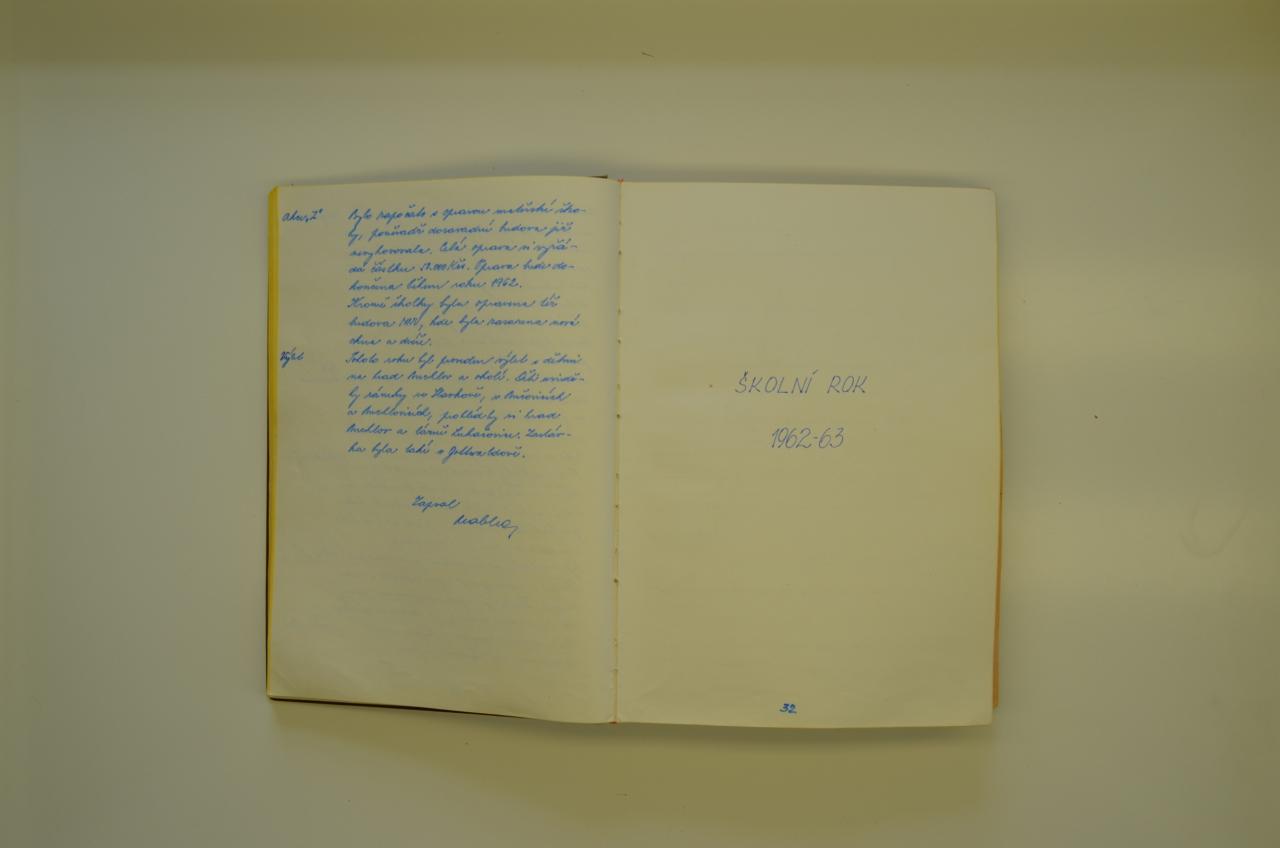 Akce "Z"
Bylo započato s opravou mateřské ško-
ly, poněvadž dosavadní budova již
nevyhovovala. Celá oprava si vyžá-
dá částku Kčs. Oprava bude do-
končena během roku 1962.
Kromě školky byla opravena též
budova MNV, kde byla zasazena nová
okna a dveře.
Výlet
Tohoto roku byl pořádán výlet s dětmi
na hrad Buchlov a okolí. Děti uvidě-
ly zámky ve
a Buchlovicích, prohlédly si hrad
Buchlov a lázně Luhačovice. Zastáv-
ka byla také v Gottwaldově.
Zapsal
ŠKOLNÍ ROK
1962-63
32